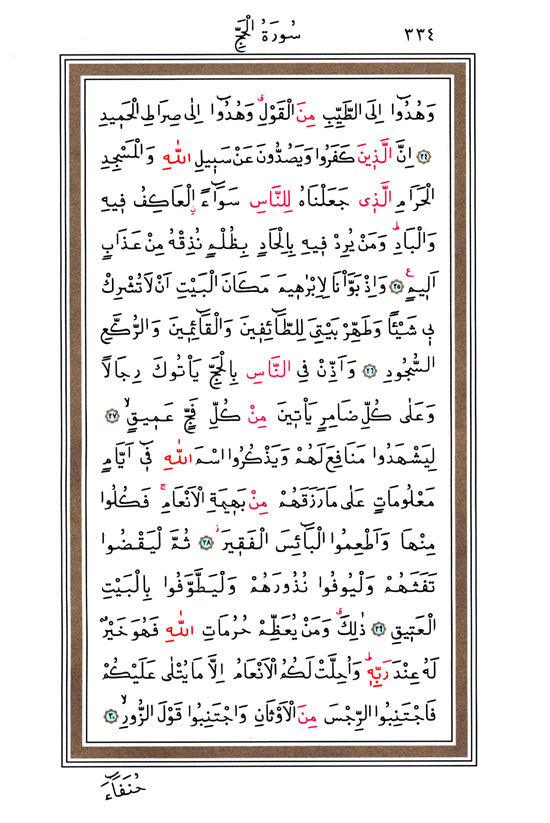 سُورَةُ الْحَجِّ ٣٣٤
وَهُدُٓوا اِلَى الطَّيِّبِ مِنَ الْقَوْلِۚ وَهُدُٓوا اِلٰى صِرَاطِ الْحَم۪يدِ
﴿٢٤﴾ اِنَّ الَّذ۪ينَ كَفَرُوا وَيَصُدُّونَ عَنْ سَب۪يلِ اللّٰهِ وَالْمَسْجِدِ
الْحَرَامِ الَّذ۪ي جَعَلْنَاهُ لِلنَّاسِ سَوَٓاءًۨ الْعَاكِفُ ف۪يهِ
وَالْبَادِۜ وَمَنْ يُرِدْ ف۪يهِ بِاِلْحَادٍ بِظُلْمٍ نُذِقْهُ مِنْ عَذَابٍ
اَل۪يمٍ۟ ﴿٢٥﴾ وَاِذْ بَوَّأْنَا لِاِبْرٰه۪يمَ مَكَانَ الْبَيْتِ اَنْ لَا تُشْرِكْ
ب۪ي شَيْـًٔا وَطَهِّرْ بَيْتِيَ لِلطَّٓائِف۪ينَ وَالْقَٓائِم۪ينَ وَالرُّكَّعِ
السُّجُودِ ﴿٢٦﴾ وَاَذِّنْ فِي النَّاسِ بِالْحَجِّ يَأْتُوكَ رِجَالًا
وَعَلٰى كُلِّ ضَامِرٍ يَأْت۪ينَ مِنْ كُلِّ فَجٍّ عَم۪يقٍۙ ﴿٢٧﴾
لِيَشْهَدُوا مَنَافِعَ لَهُمْ وَيَذْكُرُوا اسْمَ اللّٰهِ ف۪ٓي اَيَّامٍ
مَعْلُومَاتٍ عَلٰى مَا رَزَقَهُمْ مِنْ بَه۪يمَةِ الْاَنْعَامِۚ فَكُلُوا
مِنْهَا وَاَطْعِمُوا الْبَٓائِسَ الْفَق۪يرَۘ ﴿٢٨﴾ ثُمَّ لْيَقْضُوا
تَفَثَهُمْ وَلْيُوفُوا نُذُورَهُمْ وَلْيَطَّوَّفُوا بِالْبَيْتِ
الْعَت۪يقِ ﴿٢٩﴾ ذٰلِكَۗ وَمَنْ يُعَظِّمْ حُرُمَاتِ اللّٰهِ فَهُوَ خَيْرٌ
لَهُ عِنْدَ رَبِّه۪ۜ وَاُحِلَّتْ لَكُمُ الْاَنْعَامُ اِلَّا مَا يُتْلٰى عَلَيْكُمْ
فَاجْتَنِبُوا الرِّجْسَ مِنَ الْاَوْثَانِ وَاجْتَنِبُوا قَوْلَ الزُّورِۙ ﴿٣٠﴾
حُنَفَٓاءَ